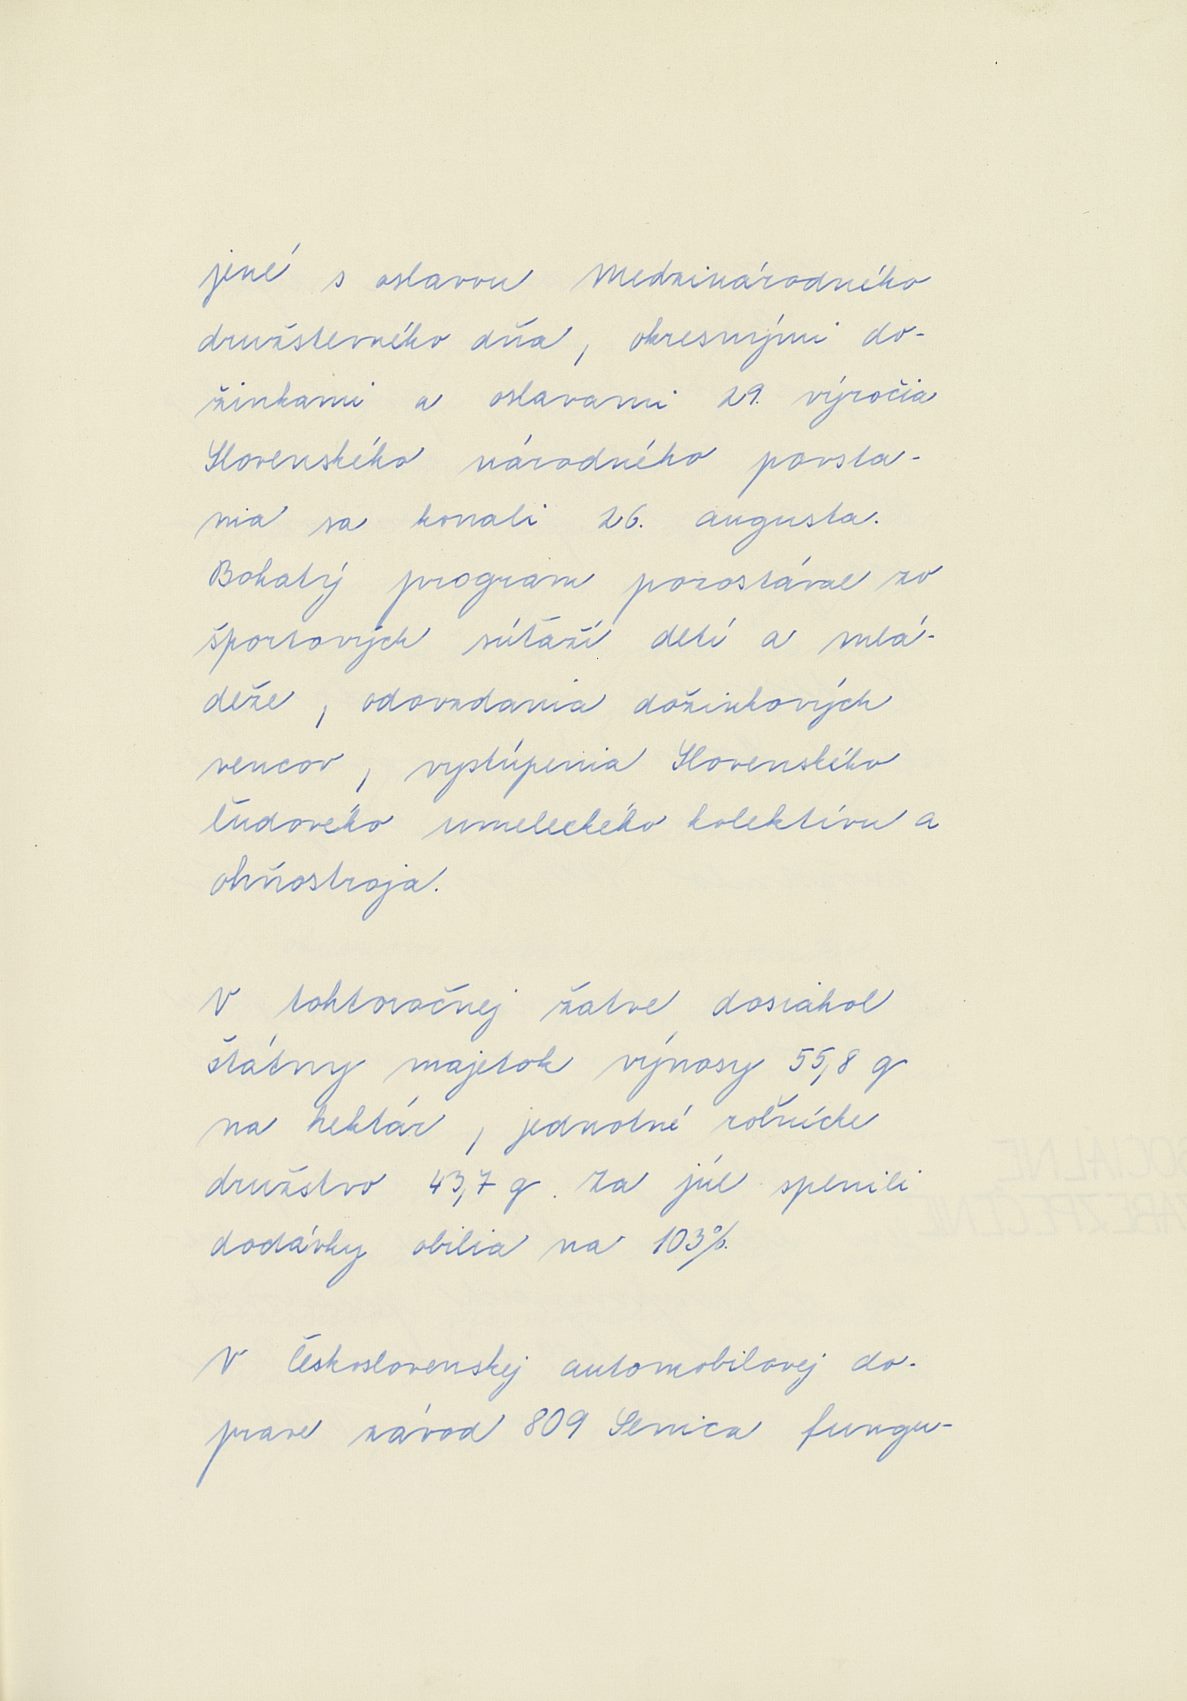 jené s oslavou Medzinárodného
družstevného dňa, okresnými do-
žinkami a oslavami 29. výročia
Slovenského národného povsta-
nia sa konali 26. augusta.
Bohatý program pozostával zo
športových súťaží detí a mlá-
deže, odovzdania dožinkových
vencov, vystúpenia Slovenského
ľudového umeleckého kolektívu a
ohňostroja.
V tohtoročnej žatve dosiahol
štátny majetok výnosy 55,8 q
na hektár, jednotné roľnícke
družstvo 43,7 q. Za júl splnili
dodávky obilia na 103%.
V Československej automobilovej do-
prave závod 809 Senica fungu-